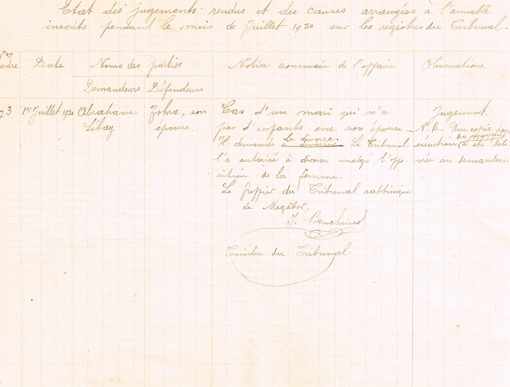 Etat des jugements rendus et des causes arrangées à l'amiable
inscrits pendant le mois de Juillet 1920 sur les registres du Tribunal.
Nos Date Noms des parties Notice sommaire de l'affaire Observations.
ordre
Demandeurs Défendeurs
3 1er Juillet 1920 Abraham Zohra, son Cas d'un mari qui n'a Jugement.
épouse. pas d'enfants avec son épouse. N.B. Une copie
Il demande le divorce. Le Tribunal exécution a été déli
l'a autorisé à divorcer malgré l'oppo vrée au demandeur.
sition de la femme.
Le greffier du Tribunal rabbinique
de Mogador,
Timbre du Tribunal